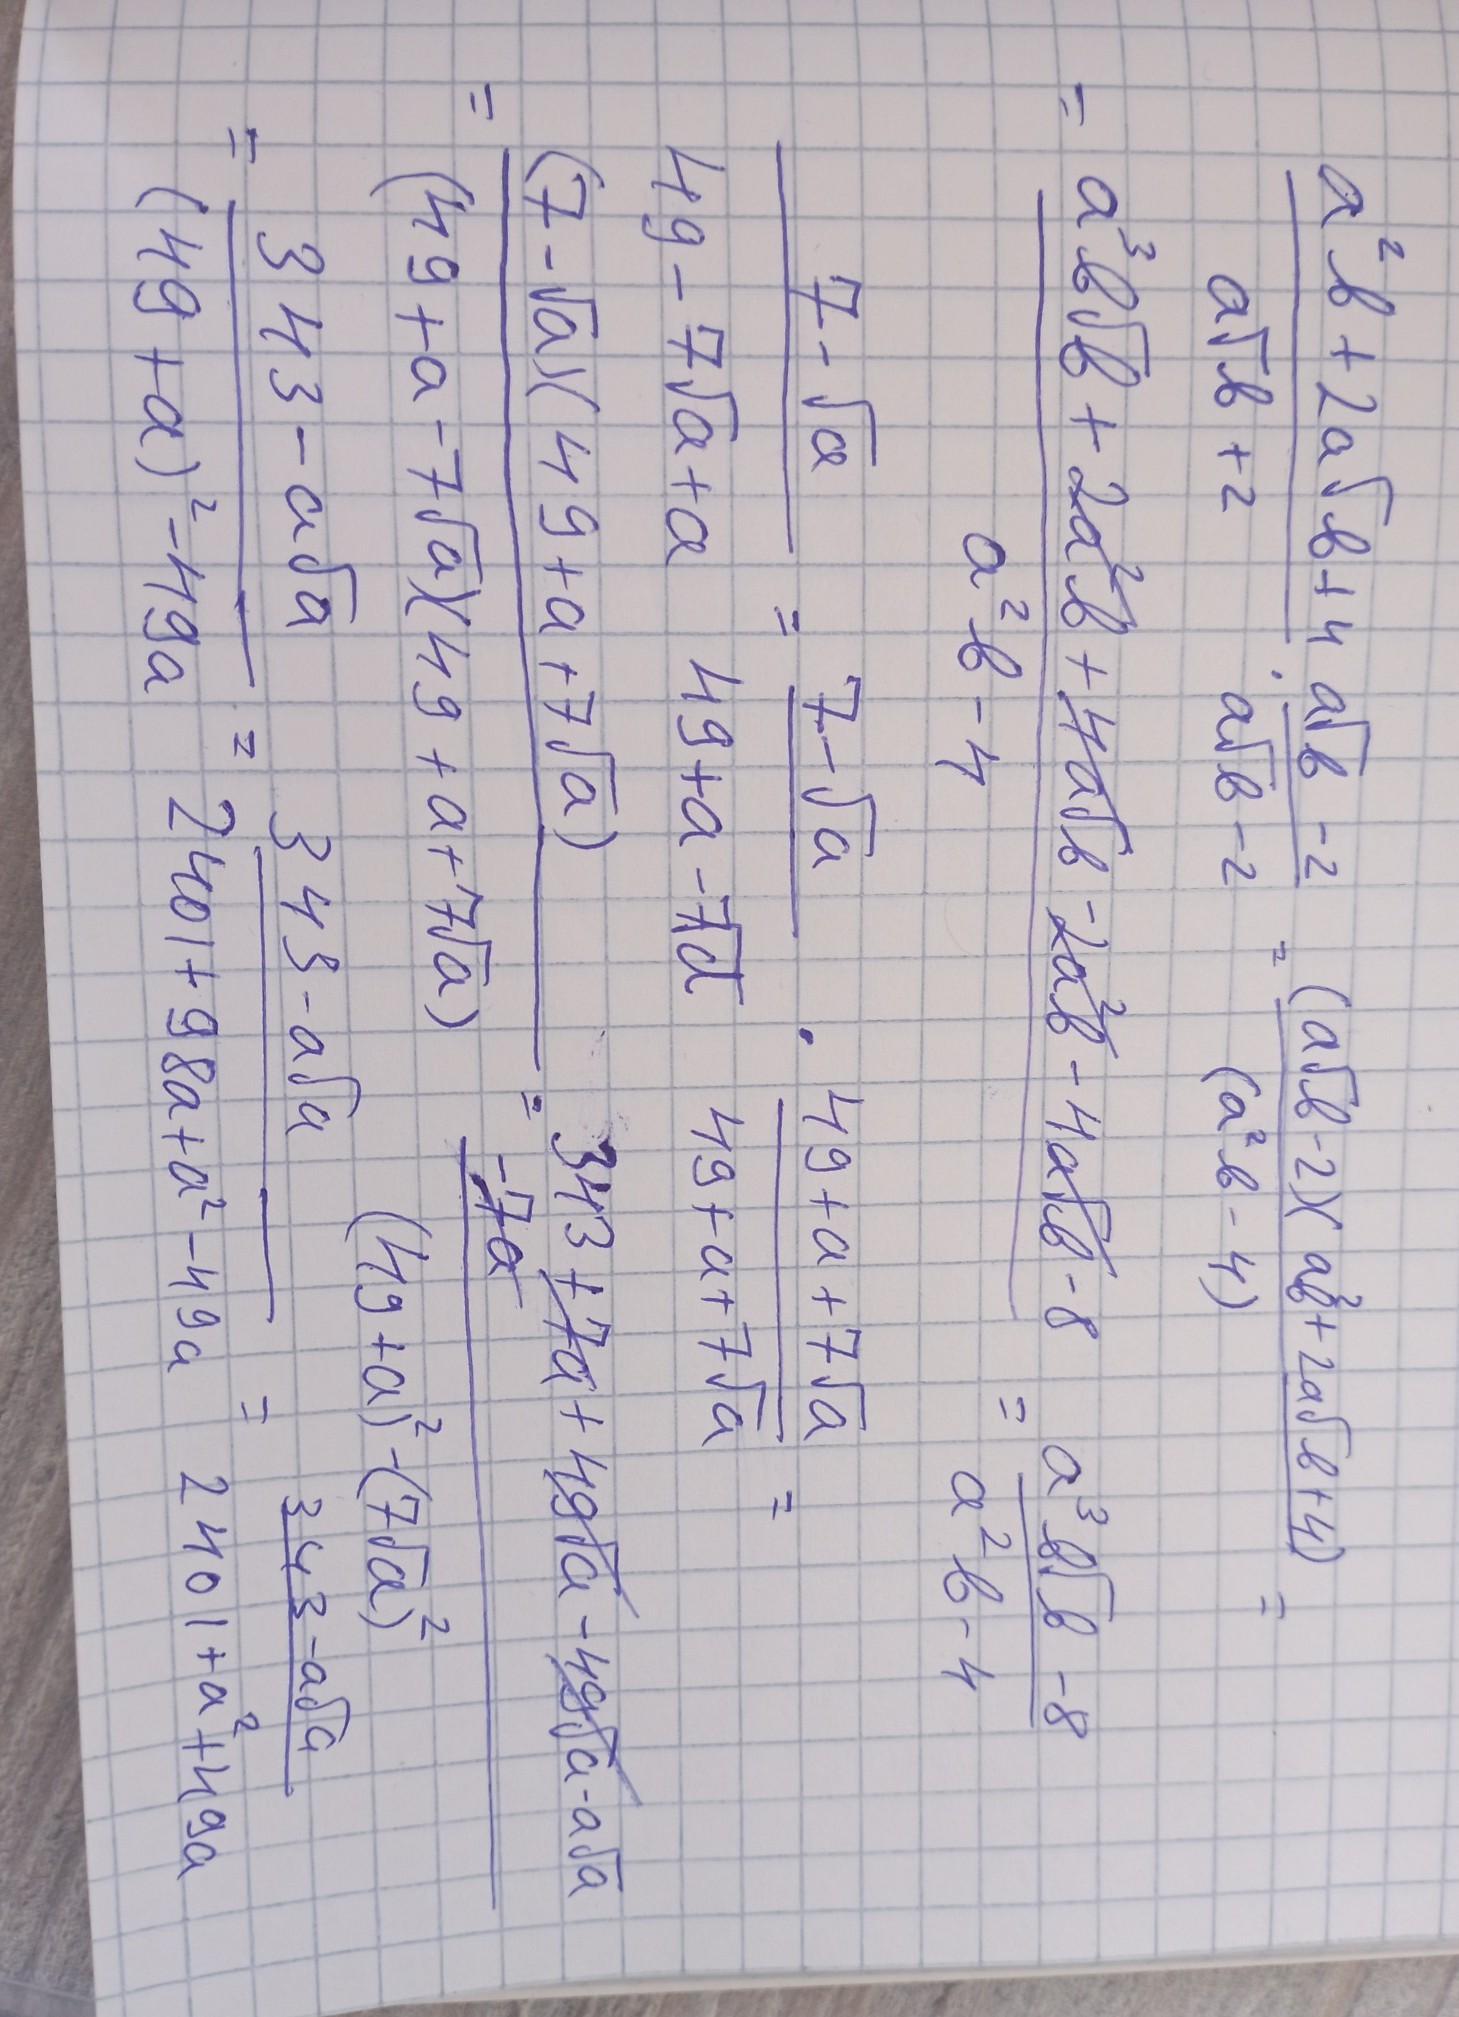 a²b + 2a√b + 4 / a√b + 2 · a√b - 2 / a√b - 2 = (a√b - 2)(a²b + 2a√b + 4) / (a²b - 4) =
= a³b√b + 2a²b + 4a√b - 2a²b - 4a√b - 8 / a²b - 4 = a³b√b - 8 / a²b - 4
7 - √a / 49 - 7√a + a = 7 - √a / 49 + a - 7√a · 49 + a + 7√a / 49 + a + 7√a =
= (7 - √a)(49 + a + 7√a) / (49 + a - 7√a)(49 + a + 7√a) = 343 + 7a + 49√a - 49√a - a√a - 7a / (49 + a)² - (7√a)²
= 343 - a√a / (49 + a)² - 49a = 343 - a√a / 2401 + 98a + a² - 49a = 343 - a√a / 2401 + a² + 49a